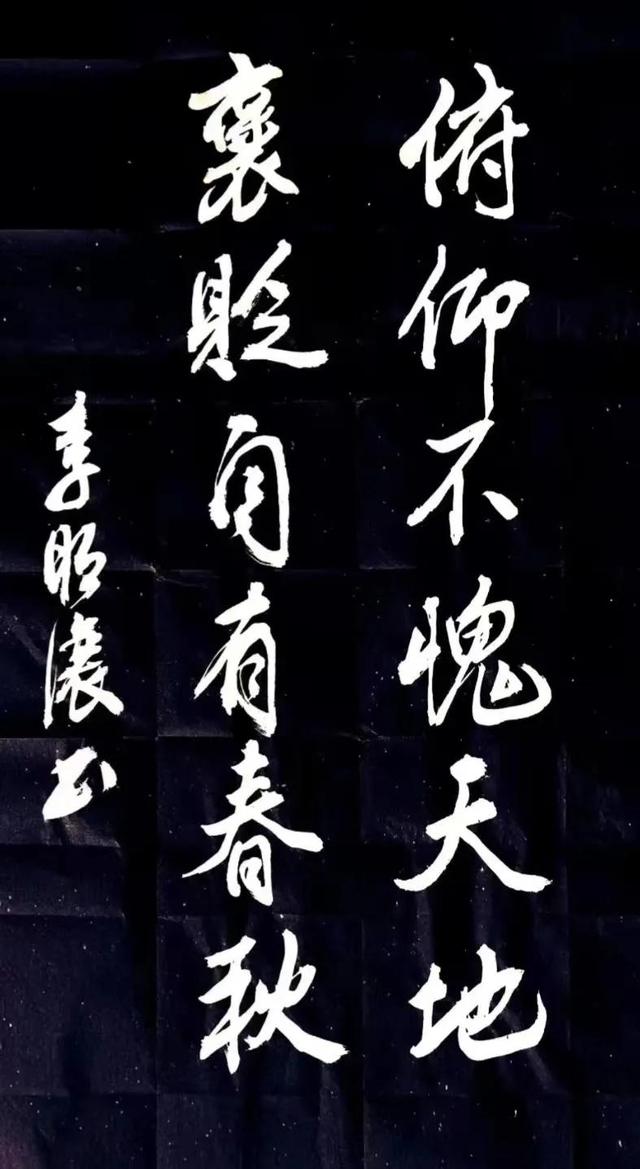 俯仰不愧天地
褒貶自有春秋
李昭瀼书